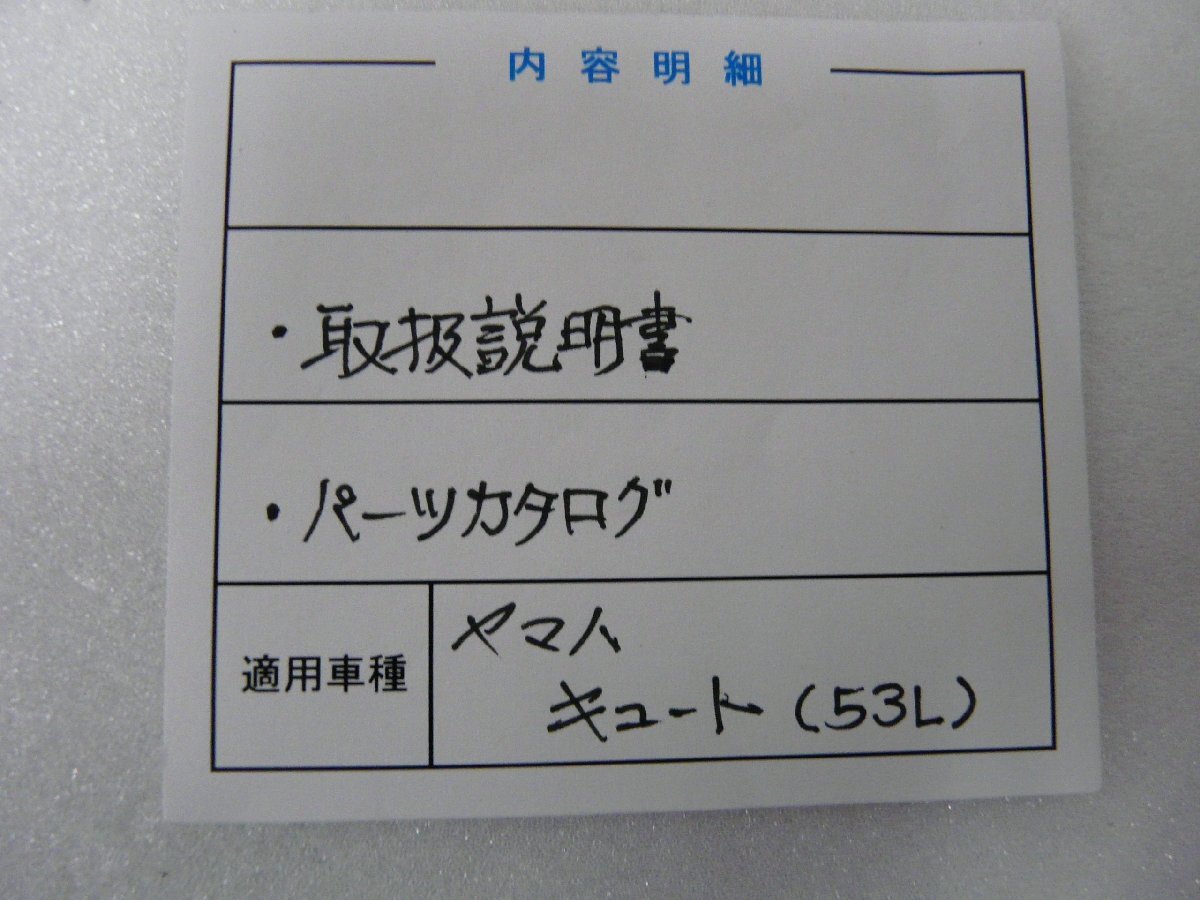 内容明細
・取扱説明書
・パーツカタログ
適用車種
ヤマハ
キュート(53L)